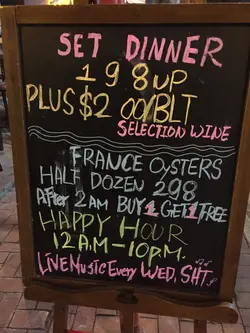 SET DINNER
198UP
PLUS $200/BLT
SELECTION WINE
FRANCE OYSTERS
HALF DOZEN 298
After 2AM BUY 1 GET 1 FREE
HAPPY HOUR
12A.M-10P.M.
LIVE MUSIC EVERY WED, SAT.